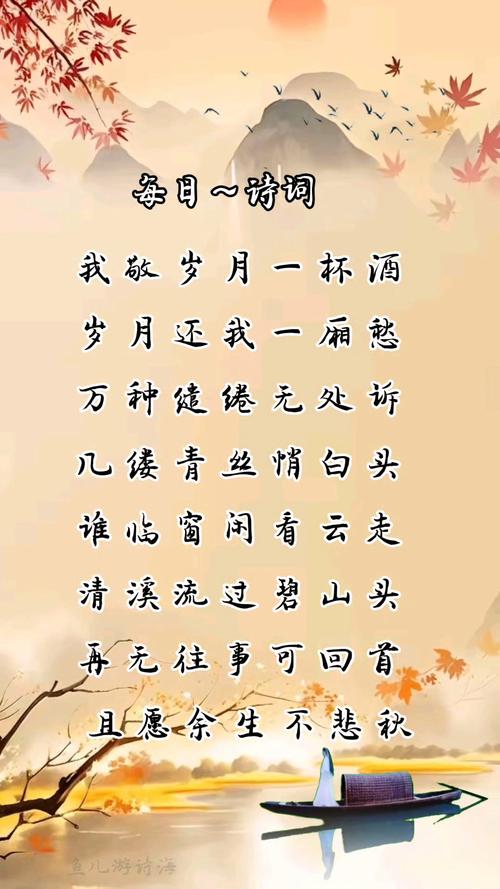 每日～诗词
我敬岁月一杯酒
岁月还我一厢愁
万种缱绻无处诉
几缕青丝悄白头
谁临窗闲看云走
清溪流过碧山头
再无往事可回首
且愿余生不悲秋
鱼儿游诗海